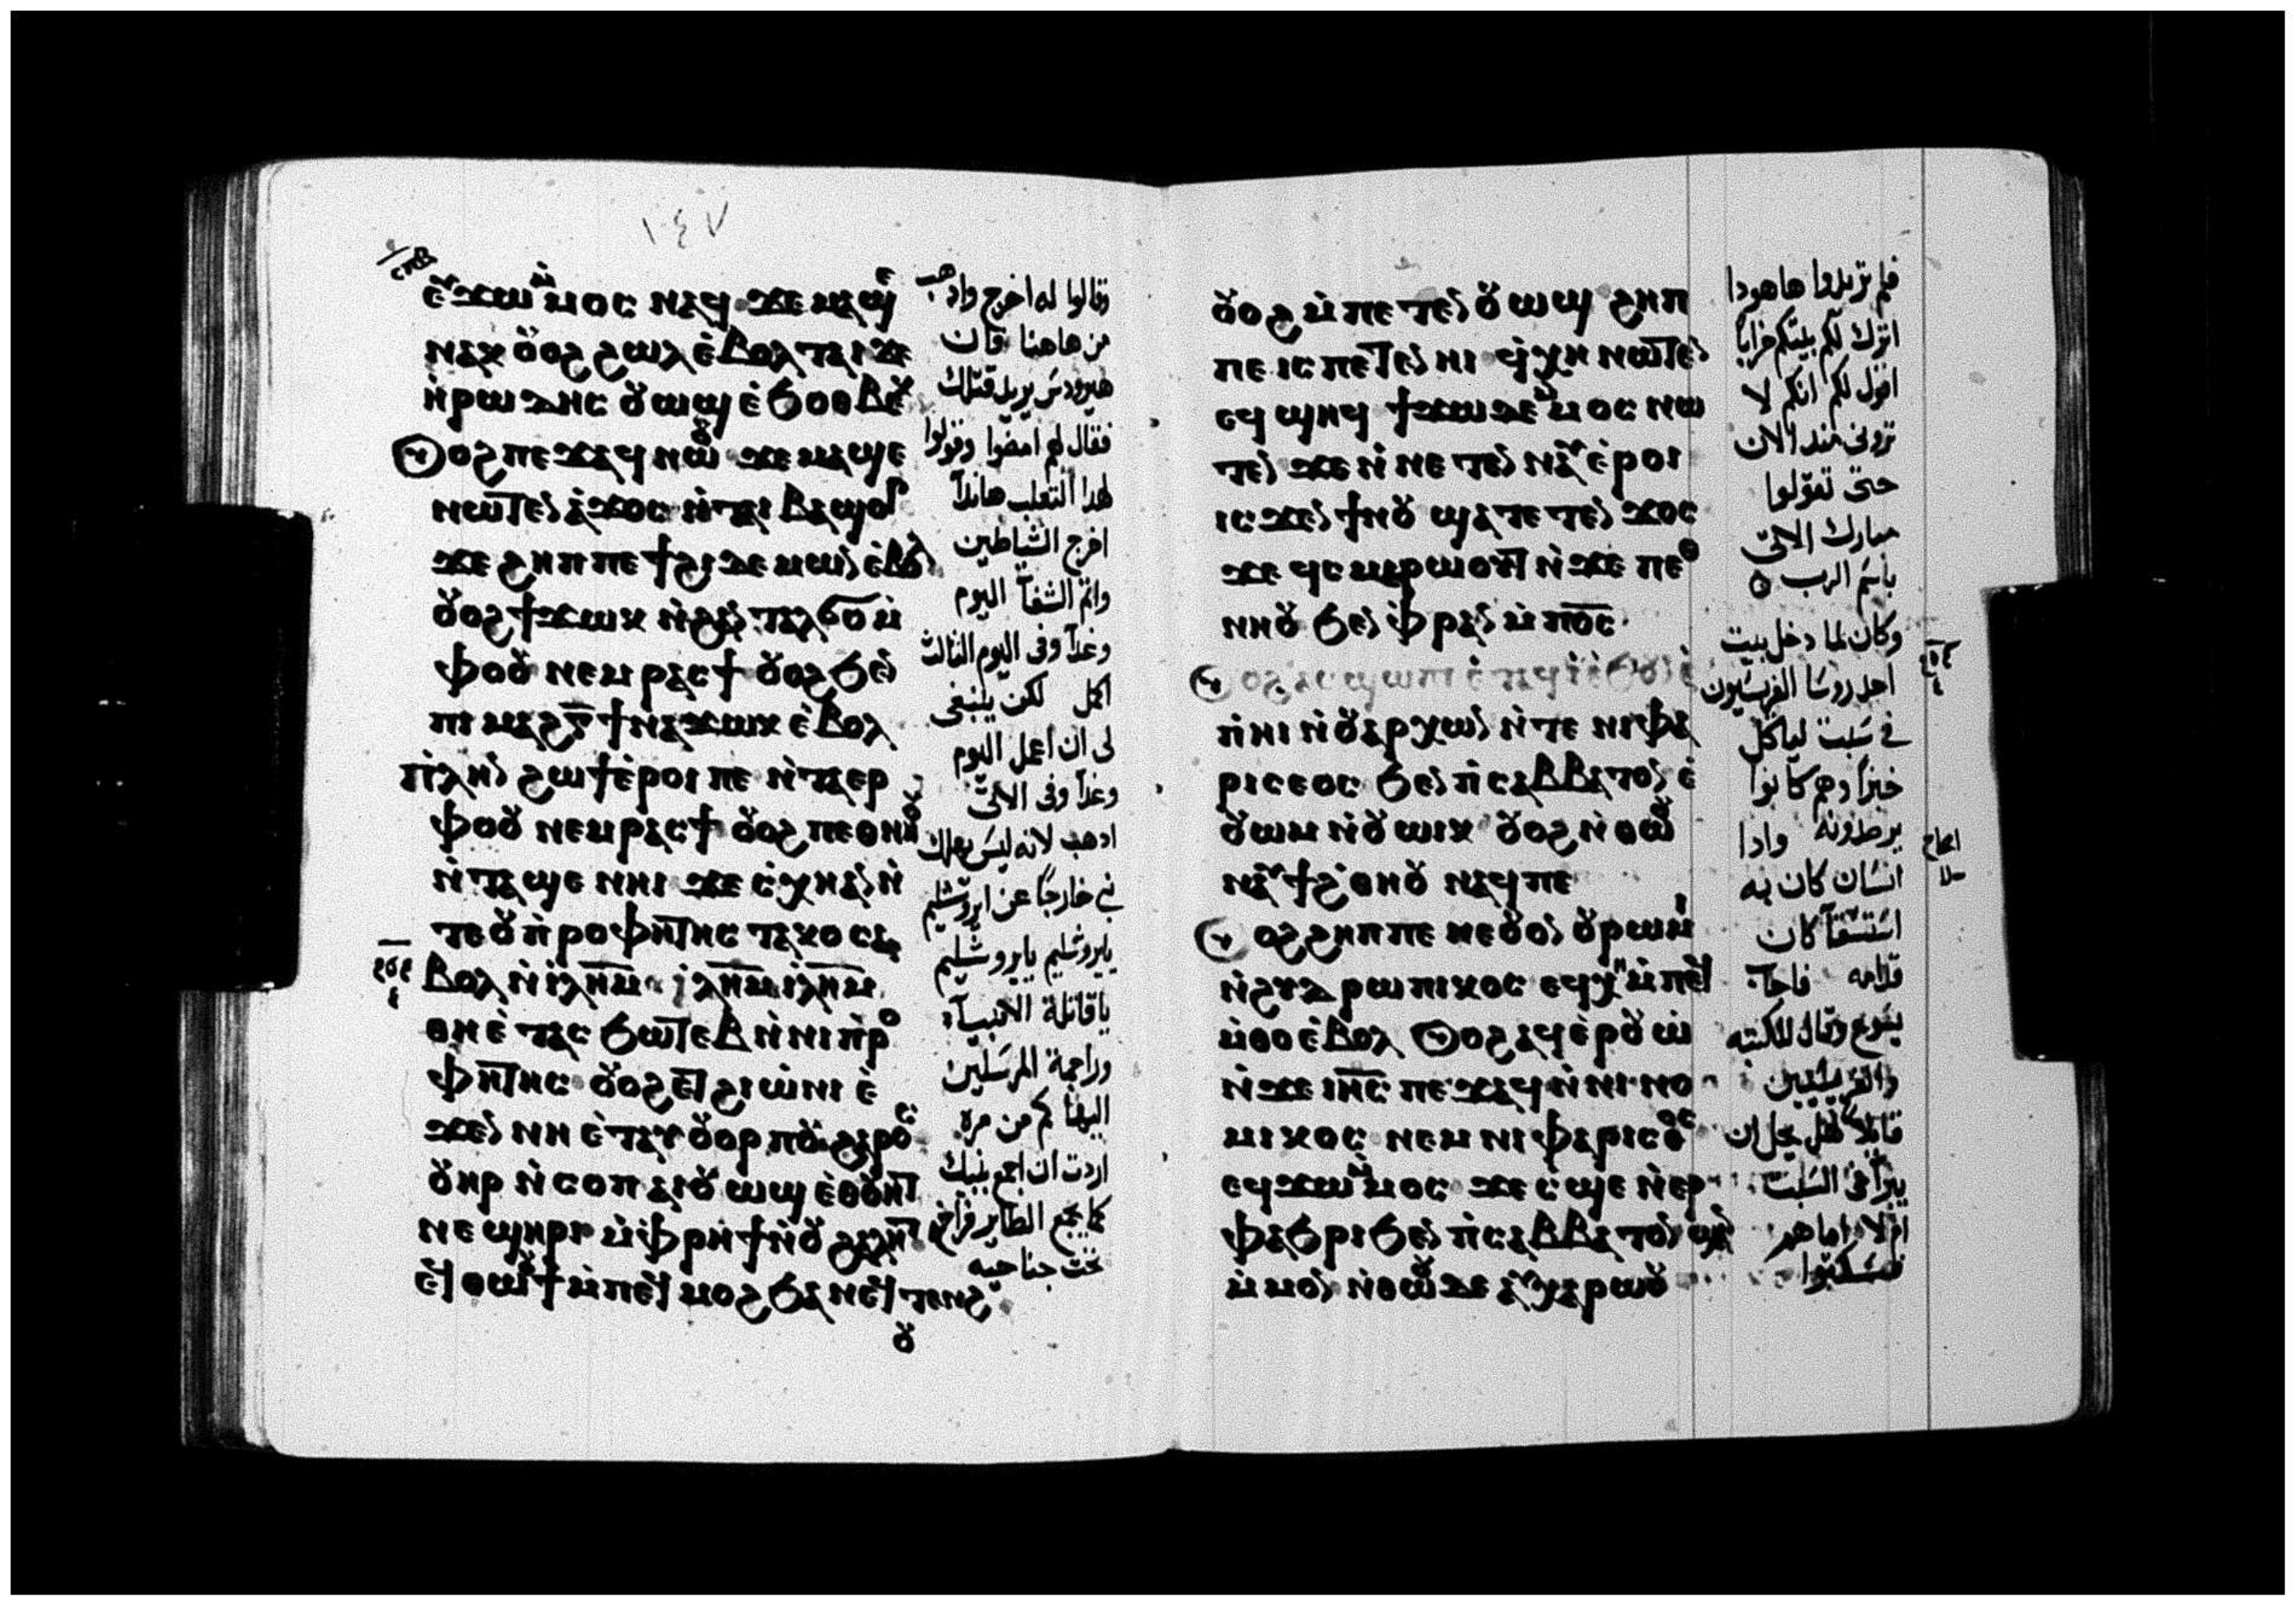 ١٤٧
ⲉⲩϫⲱⲙⲙⲟⲥ ⲛⲁϥ ϫⲉ ⲙⲁϣⲉ
ⲛⲁⲕ ⲟⲩⲟϩ ϩⲱⲗ ⲉ̀ⲃⲟⲗ ⲧⲁⲓ ϫⲉ
ⲏ̀ⲣⲱⲇⲏⲥ ⲟⲩⲱϣ ⲉ̀ϧⲟⲑⲃⲉⲕ
ⲟⲩⲟϩ ⲡⲉϫⲁϥ ⲛⲱⲟⲩ ϫⲉ ⲙⲁϣⲉ
ⲛⲱⲧⲉⲛ ⲁ̀ϫⲟⲥ ⲛ̀ⲧⲁⲓ ⲃⲁϣⲟⲣ
ϫⲉ ϩⲏⲡⲡⲉ ϯϩⲓ ⲇⲉⲙⲱⲛ ⲉ̀ⲃⲟⲗ
ⲟⲩⲟϩ ϯϫⲱⲕ ⲛ̀ϩⲁⲛ ⲧⲁⲗϭⲟ ⲙ̀
ⲫⲟⲟⲩ ⲛⲉⲙ ⲣⲁⲥϯ ⲟⲩⲟϩ ϧⲉⲛ
ⲡⲓ ⲙⲁϩⲅ̅ ϯⲛⲁϫⲱⲕ ⲉ̀ⲃⲟⲗ
ⲡⲗⲏⲛ ϩⲱϯ ⲉ̀ⲣⲟⲓ ⲡⲉ ⲛ̀ⲧⲁⲉⲣ
ⲫⲟⲟⲩ ⲛⲉⲙ ⲣⲁⲥϯ ⲟⲩⲟϩ ⲡⲉⲑⲛⲏⲟⲩ
ⲛ̀ⲧⲁϣⲉ ⲛⲏⲓ ϫⲉ ⲥ̀ⲭⲏ ⲁⲛ ⲛ̀
ⲧⲉ ⲟⲩⲡ̀ⲣⲟⲫⲏⲧⲏⲥ ⲧⲁⲕⲟ ⲥⲁ
ⲃⲟⲗ ⲛ̀ⲓ̀ⲗ̅ⲏ̅ⲙ̅ ⲓ̀ⲗ̅ⲏ̅ⲙ̅ ⲓ̀ⲗ̅ⲏ̅ⲙ̅
ⲑⲏⲉ̀ ⲧⲁⲥ ϧⲱⲧⲉⲃ ⲛ̀ⲛⲓ ⲡ̀ⲣⲟ
ⲫⲏⲧⲏⲥ ⲟⲩⲟϩ ⲉⲧ ϩⲓⲱ̀ⲛⲓ ⲉ̀
ϫⲉⲛ ⲛⲏ ⲉ̀ⲧⲁⲩ ⲟⲩⲟⲣⲡⲟⲩ ϩⲁⲣⲟⲥ
ⲟⲩⲏⲣ ⲛ̀ⲥⲟⲡ ⲁⲓⲟⲩⲱϣ ⲉ̀ⲑⲟⲩⲉⲧ
ⲛⲉ ϣⲏⲣⲓ ⲙ̀ⲫⲣⲏϯ ⲛ̀ⲟⲩ ϩⲁⲗⲏⲧ
ⲉⲧ ⲑⲱⲟⲩϯ ⲙ̀ⲡⲉϥ ⲙⲟϩ ϧⲁ ⲛⲉϥ ⲧⲉⲛϩ
ⲟⲩ
وقالوا له اخرج واذهب
من هاهنا فان
هيرودس يريد قتلك
فقال لهم امضوا وقولوا
لهذا الثعلب هانذا
اخرج الشياطين
واتم الشفآ اليوم
وغدآ وفى اليوم الثالث
اكمل لكن ينبغى
لى ان اعمل اليوم
وغدآ وفى الاتى
اذهب لانه ليس يهلك
نبى خارجا عن ايروشليم
يايروشليم يايروشليم
ياقاتلة الانبيآء
وراجمة المرسلين
اليها كم من مره
اردت ان اجمع بنيك
كما يجمع الطاير فراخ
تحت جناحيه
ⲟⲩⲟϩ ⲙ̀ⲡⲉ ⲧⲉⲛ ⲟⲩⲱϣ ϩⲏⲡ
ⲡⲉ ⲓⲥ ⲡⲉⲧⲉⲛ ⲏⲓ ϥ̀ⲭⲏ ⲛⲱⲧⲉⲛ
ⲉϥ ϣⲏϥ ϯϫⲱ ⲇⲉ ⲙⲙⲟⲥ ⲛⲱ
ⲧⲉⲛ ϫⲉ ⲛ̀ⲛⲉ ⲧⲉⲛ ⲛⲁⲩ ⲉ̀ⲣⲟⲓ
ⲓⲥϫⲉⲛ ϯⲛⲟⲩ ϣⲁⲧⲉ ⲧⲉⲛ ϫⲟⲥ
ϫⲉ ϥⲥ ⲙⲁⲣⲱⲟⲩⲧ ⲛ̀ϫⲉ ⲡⲉⲑ
ⲛⲏⲟⲩ ϧⲉⲛ ⲫⲣⲁⲛ ⲙ̀ⲡ̅ⲟ̅ⲥ̅
ⲟⲩⲟϩ ⲁⲥϣⲱⲡⲓ ⲉ̀ⲧⲁϥⲓ̀ ⲉ̀ϧⲟⲩⲛ ⲉ̀
ⲡ̀ⲏⲓ ⲛ̀ⲟⲩⲁⲣⲭⲱⲛ ⲛ̀ⲧⲉ ⲛⲓⲫⲁ
ⲣⲓⲥⲉⲟⲥ ϧⲉⲛ ⲡ̀ⲥⲁⲃⲃⲁⲧⲟⲛ ⲉ̀
ⲟⲩⲱⲙ ⲛ̀ⲟⲩⲱⲓⲕ ⲟⲩⲟϩ ⲛ̀ⲑⲱⲟⲩ
ⲛⲁⲩϯϩ̀ⲑⲏⲟⲩ ⲛⲁϥⲡⲉ
ⲟⲩⲟϩ ϩⲏⲡⲡⲉ ⲛⲉⲟⲩⲟⲛ ⲟⲩⲣⲱⲙⲓ
ⲛ̀ϩⲩⲇⲣⲱⲡⲓⲕⲟⲥ ⲉϥⲭⲏ ⲙ̀ⲡⲉϥ
ⲙ̀ⲑⲟ ⲉ̀ⲃⲟⲗ ⲟⲩⲟϩ ⲁϥⲉ̀ⲣⲟⲩⲱ̀
ⲛ̀ϫⲉ ⲓ̅ⲏ̅ⲥ̅ ⲡⲉϫⲁϥ ⲛ̀ⲛⲓ ⲛⲟ
ⲙⲓⲕⲟⲥ ⲛⲉⲙ ⲛⲓ ⲫⲁⲣⲓⲥⲉⲟⲥ
ⲉϥϫⲱⲙⲙⲟⲥ ϫⲉ ⲥ̀ϣⲉ ⲛ̀ⲉⲣ
ⲫⲁϧⲣⲓ ϧⲉⲛ ⲡ̀ⲥⲁⲃⲃⲁⲧⲟⲛ ϣⲁⲛ
ⲙ̀ⲙⲟⲛ ⲛ̀ⲑⲱⲟⲩ ⲇⲉ ⲁⲩⲭⲁⲣⲱⲟⲩ
فلم تريدوا هاهوذا
اترك لكم بيتكم خرابا
اقول لكم انكم لا
ترونى منذ الان
حتى تقولوا
مبارك الاتى
باسم الرب
وكان لما دخل بيت
احد روسا الفريسيون
فى سبت لياكل
خبزا وهم كانوا
يرصدونه واذا
انسان كان به
استسقآ كان
قدامه فاجا
يسوع وقال للكتبه
والفريسيين
قايلا هل يحل ان
يبرآ فى السبت
ام لا اما هم
فسكتوا